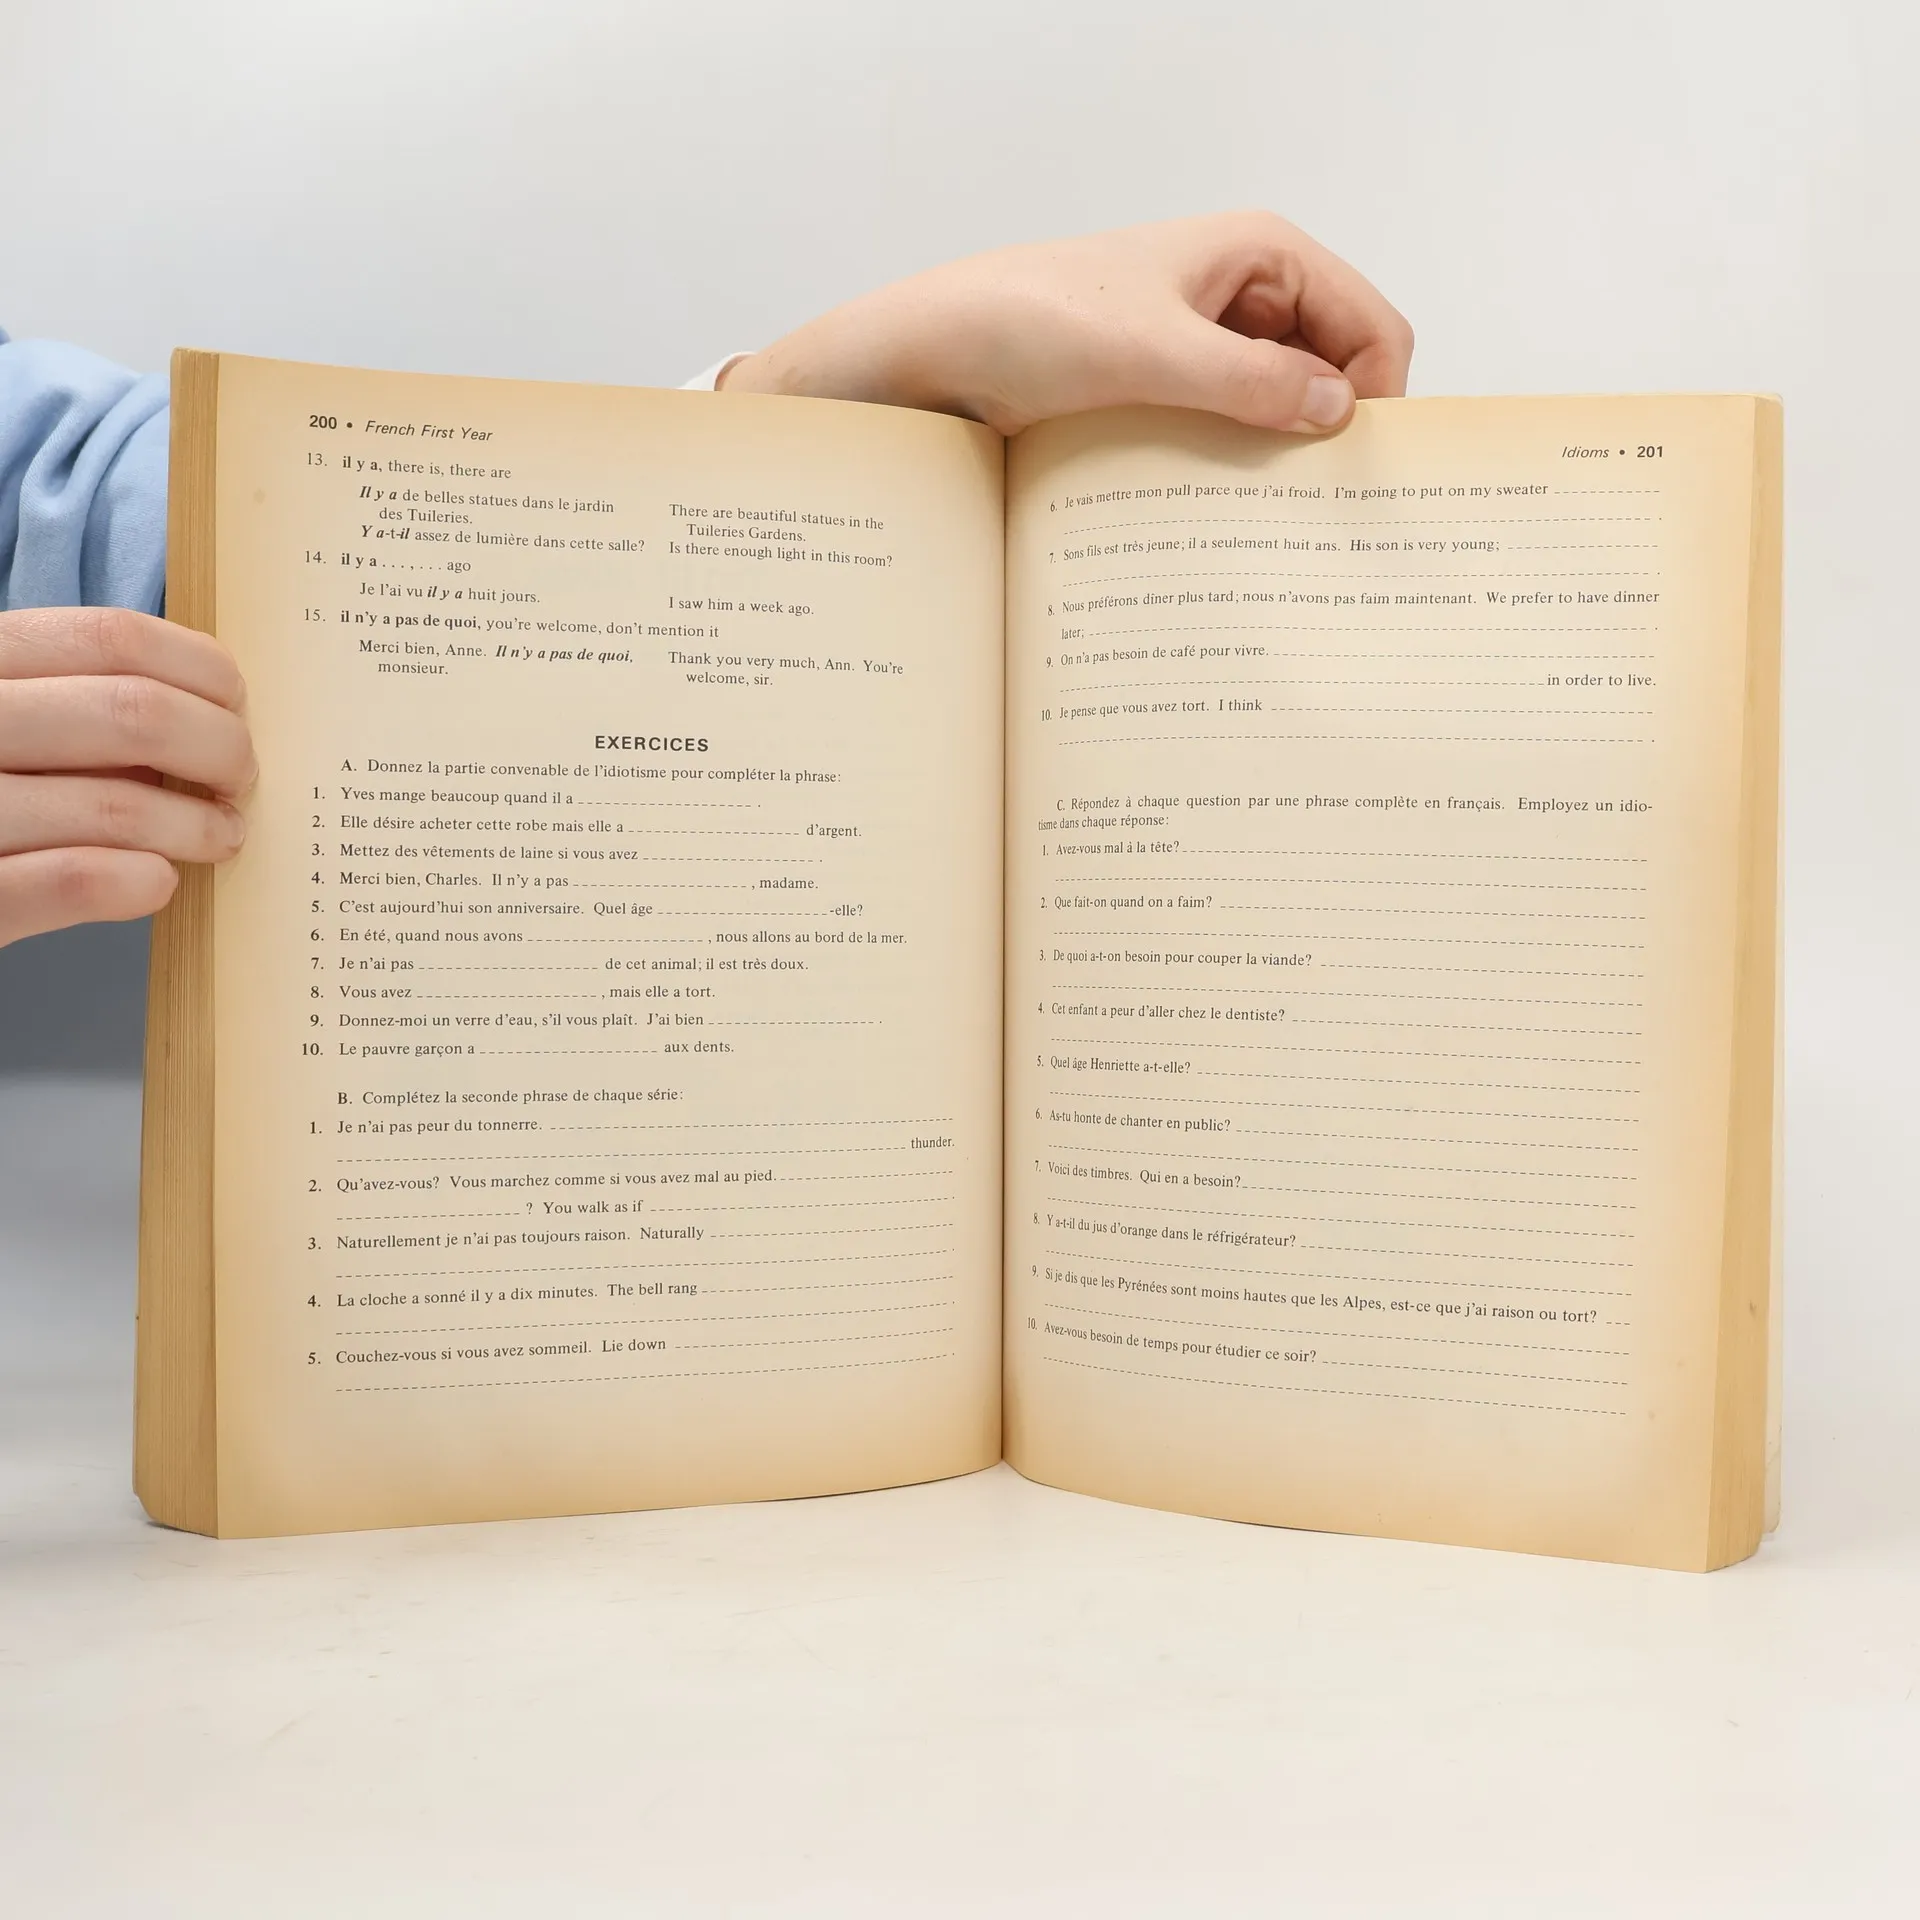 200 • French First Year
13. il y a, there is, there are
Il y a de belles statues dans le jardin des Tuileries.
There are beautiful statues in the Tuileries Gardens.
Y a-t-il assez de lumière dans cette salle?
Is there enough light in this room?
14. il y a . . . , . . . ago
Je l'ai vu il y a huit jours.
I saw him a week ago.
15. il n'y a pas de quoi, you're welcome, don't mention it
Merci bien, Anne. Il n'y a pas de quoi, monsieur.
Thank you very much, Ann. You're welcome, sir.
EXERCICES
A. Donnez la partie convenable de l'idiotisme pour compléter la phrase:
1. Yves mange beaucoup quand il a .
2. Elle désire acheter cette robe mais elle a d'argent.
3. Mettez des vêtements de laine si vous avez .
4. Merci bien, Charles. Il n'y a pas , madame.
5. C'est aujourd'hui son anniversaire. Quel âge -elle?
6. En été, quand nous avons , nous allons au bord de la mer.
7. Je n'ai pas de cet animal; il est très doux.
8. Vous avez , mais elle a tort.
9. Donnez-moi un verre d'eau, s'il vous plaît. J'ai bien .
10. Le pauvre garçon a aux dents.
B. Complétez la seconde phrase de chaque série:
1. Je n'ai pas peur du tonnerre.
thunder.
2. Qu'avez-vous? Vous marchez comme si vous avez mal au pied.
? You walk as if .
3. Naturellement je n'ai pas toujours raison. Naturally
.
4. La cloche a sonné il y a dix minutes. The bell rang
.
5. Couchez-vous si vous avez sommeil. Lie down
.
Idioms • 201
6. Je vais mettre mon pull parce que j'ai froid. I'm going to put on my sweater
.
7. Sons fils est très jeune; il a seulement huit ans. His son is very young;
.
8. Nous préférons dîner plus tard; nous n'avons pas faim maintenant. We prefer to have dinner
later; .
9. On n'a pas besoin de café pour vivre.
in order to live.
10. Je pense que vous avez tort. I think
.
C. Répondez à chaque question par une phrase complète en français. Employez un idio-
tisme dans chaque réponse:
1. Avez-vous mal à la tête?
2. Que fait-on quand on a faim?
3. De quoi a-t-on besoin pour couper la viande?
4. Cet enfant a peur d'aller chez le dentiste?
5. Quel âge Henriette a-t-elle?
6. As-tu honte de chanter en public?
7. Voici des timbres. Qui en a besoin?
8. Y a-t-il du jus d'orange dans le réfrigérateur?
9. Si je dis que les Pyrénées sont moins hautes que les Alpes, est-ce que j'ai raison ou tort?
10. Avez-vous besoin de temps pour étudier ce soir?